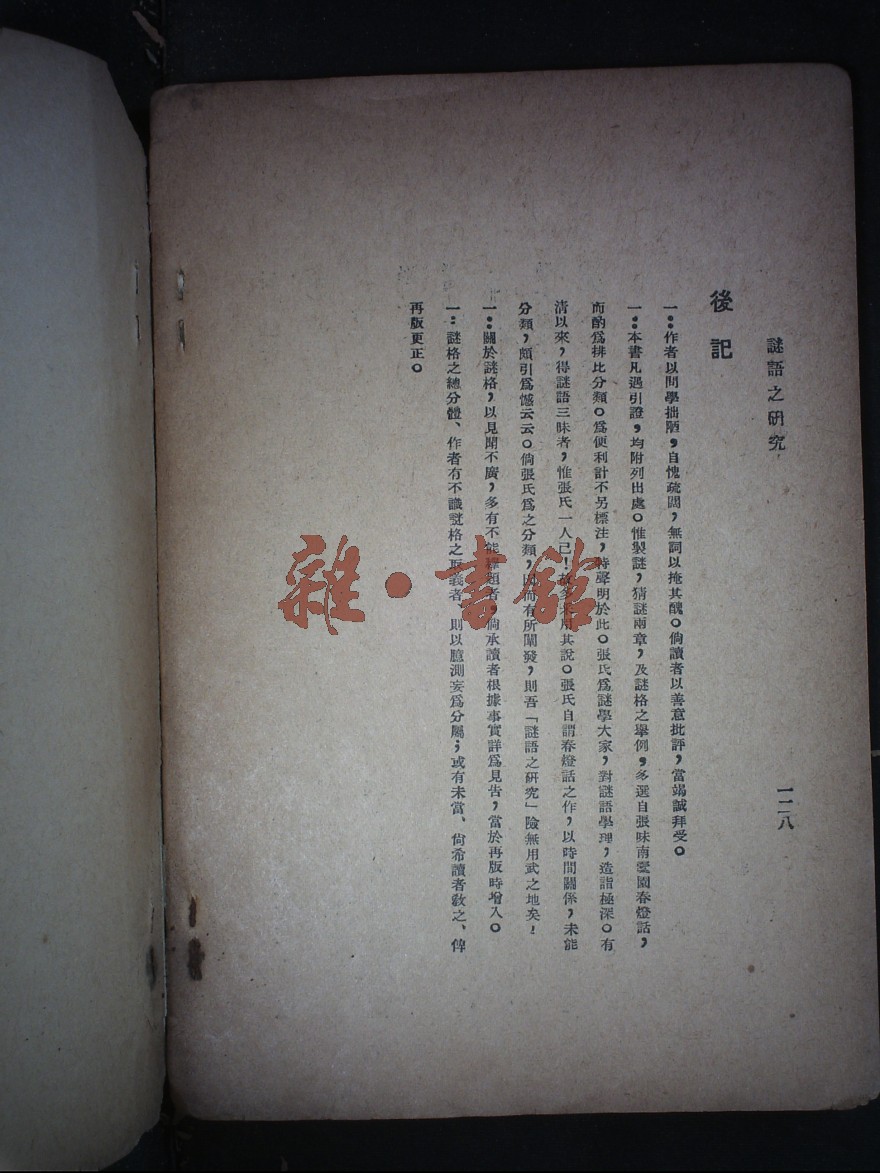 謎語之研究
一二八
後記
一：作者以問學拙陋，自愧疏闊，無詞以掩其醜。倘讀者以善意批評，當竭誠拜受。
一：本書凡遇引證，均附列出處。惟製謎，猜謎兩章，及謎格之舉例，多選自張味南鸞園春燈話，
而酌爲排比分類。爲便利計不另標注，特聲明於此。張氏爲謎學大家，對謎語學理，造詣極深。有
清以來，得謎語三昧者，惟張氏一人已！故多用其說。張氏自謂春燈話之作，以時間關係，未能
分類，頗引爲憾云云。倘張氏爲之分類，因而有所闡發，則吾「謎語之研究」險無用武之地矣！
一：關於謎格，以見聞不廣，多有不能解題者，倘承讀者根據事實詳爲見告，當於再版時增入。
一：謎格之總分體、作者有不識謎格之取義者、則以臆測妄爲分屬；或有未當、尙希讀者敎之、俾
再版更正。
雜·書館